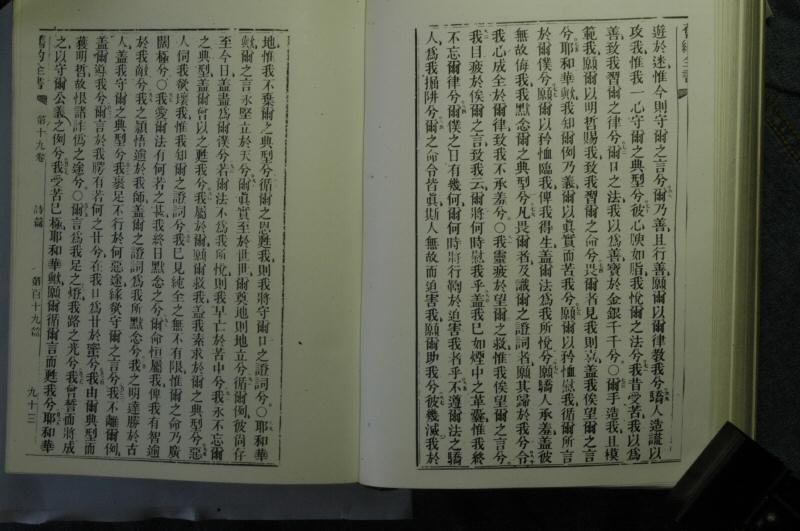 舊約全書
遊於迷惟今則守爾之言兮爾乃善且行善願爾以爾律教我兮驕人造謊以
攻我惟我一心守爾之典型兮彼心腴如脂我悅爾之法兮我昔受苦我以為
善致我習爾之律兮爾口之法我以為善寶於金銀千千兮○爾手造我且模
範我願爾以明哲賜我致我習爾之命兮畏爾者見我則喜蓋我俟望爾之言
兮耶和華歟我知爾例乃義爾以眞實而苦我兮願爾以矜恤慰我循爾所言
於爾僕兮願爾以矜恤臨我俾我得生蓋爾法為我所悅兮願驕人承羞蓋彼
無故侮我我默念爾之典型兮凡畏爾者及識爾之證詞者願其歸於我兮令
我心成全於爾律致我不承羞兮○我靈疲於望爾之救惟我俟望爾之言兮
我目疲於俟爾之言致我云爾將何時慰我乎蓋我已如煙中之革囊惟我終
不忘爾律兮爾僕之日有幾何爾何時將行鞫於迫害我者乎不遵爾法之驕
人為我掘阱兮爾之命令皆眞斯人無故而迫害我願爾助我兮彼幾滅我於
地惟我不棄爾之典型兮循爾之恩甦我則我將守爾口之證詞兮○耶和華
歟爾之言永堅立於天兮爾眞實至於世世爾奠地則地立兮循爾例彼尚存
至今日蓋盡為爾僕兮若爾法不為我所悅則我早亡於苦中兮我永不忘爾
之典型蓋爾曾以之甦我兮我屬於爾願爾救我蓋我素求於爾之典型兮惡
人伺我欲壞我惟我知爾之證詞兮我已見純全之無不有限惟爾之命乃廣
闊極兮○我愛爾法有何若之甚我終日默念之兮爾命恒屬我俾我有智逾
於我敵兮我之穎悟逾於我師蓋爾之證詞為我所默念兮我之明達勝於古
人蓋我守爾之典型兮我裹足不行於何惡途緣欲守爾之言兮我不離爾例
蓋爾導我兮爾言於我腭有若何之甘兮在我口為甘於蜜兮我由爾典型而
獲明哲故恨諸詐偽之途兮○爾言為我足之燈我路之光兮我曾誓而將成
之以守爾公義之例兮我受苦已極耶和華歟願爾循爾言而甦我兮耶和華
舊約全書 第十九卷 詩篇 第百十九篇 九十三